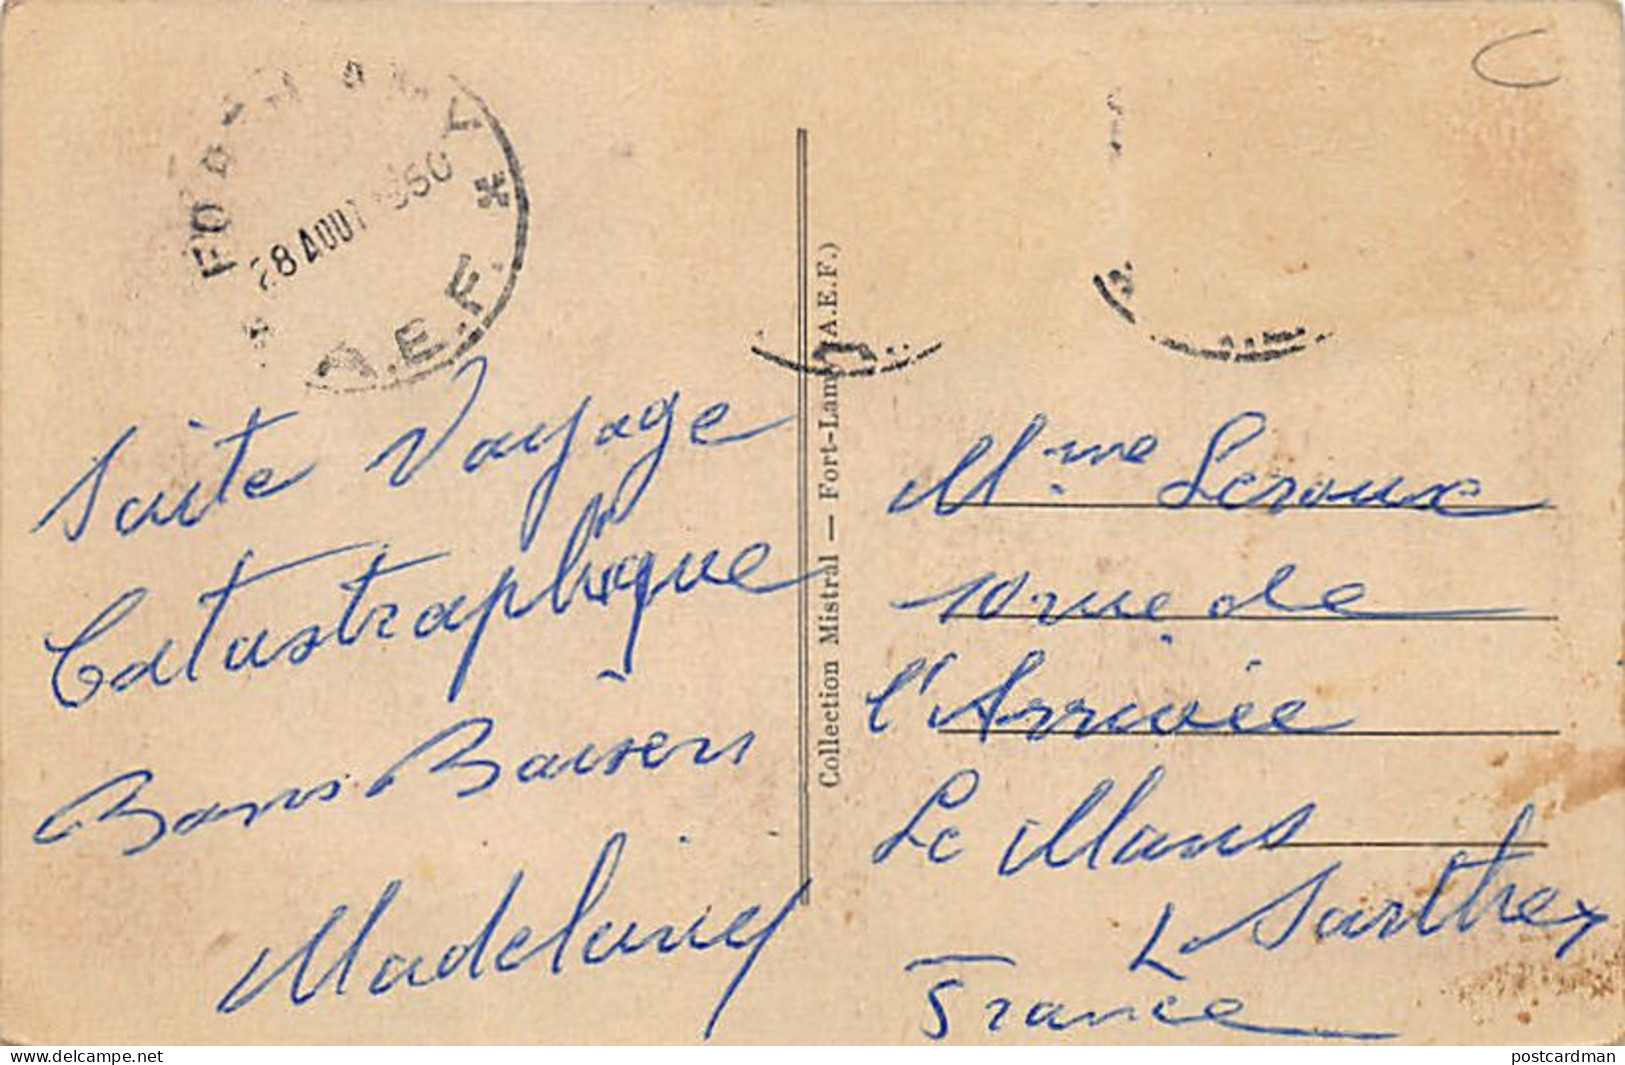 FORT-LAMY
28 AOUT 1950
A.E.F.
Suite Voyage
Catastraphique
Bons Baisers
Madeleine
Collection Mistral — Fort-Lamy (A.E.F.)
Mme Leroux
10 rue de
l'Arrivée
Le Mans
Sarthe
France
Delcampe.net
postcardman